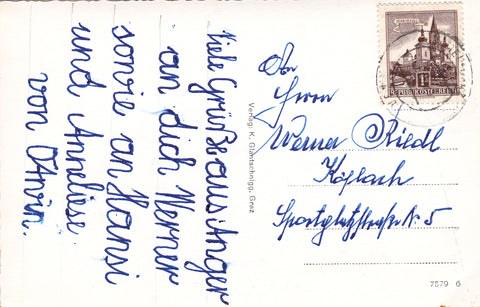 Viele Grüße aus Anger
an dich Werner
sowie an Hansi
und Anneliese.
von
Verlag: K. Glantschnigg, Graz
REPUBLIK ÖSTERREICH
An
Herrn
Werner Riedl
Köflach
Sportplatzstraße N. 5
7579 6